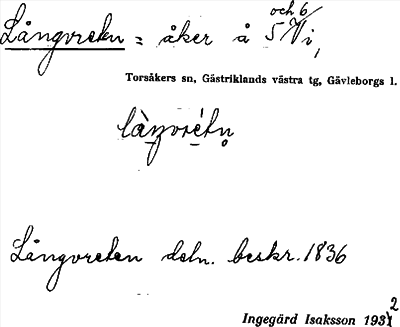 Långvreten = åker å 5 och 6 Vi,
Torsåkers sn, Gästriklands västra tg, Gävleborgs l.
Långvreten dsln. beskr. 1836
Ingegärd Isaksson 1932